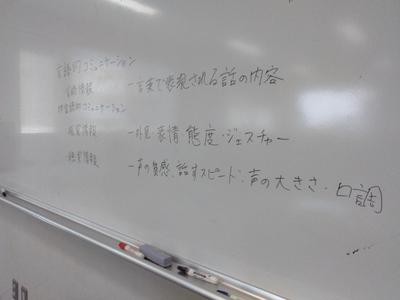 言語的コミュニケーション
言語情報 ー言葉で表現される話の内容
非言語的コミュニケーション
視覚情報 ー外見 表情 態度・ジェスチャー
聴覚情報 ー声の質感、話すスピード・声の大きさ・口調